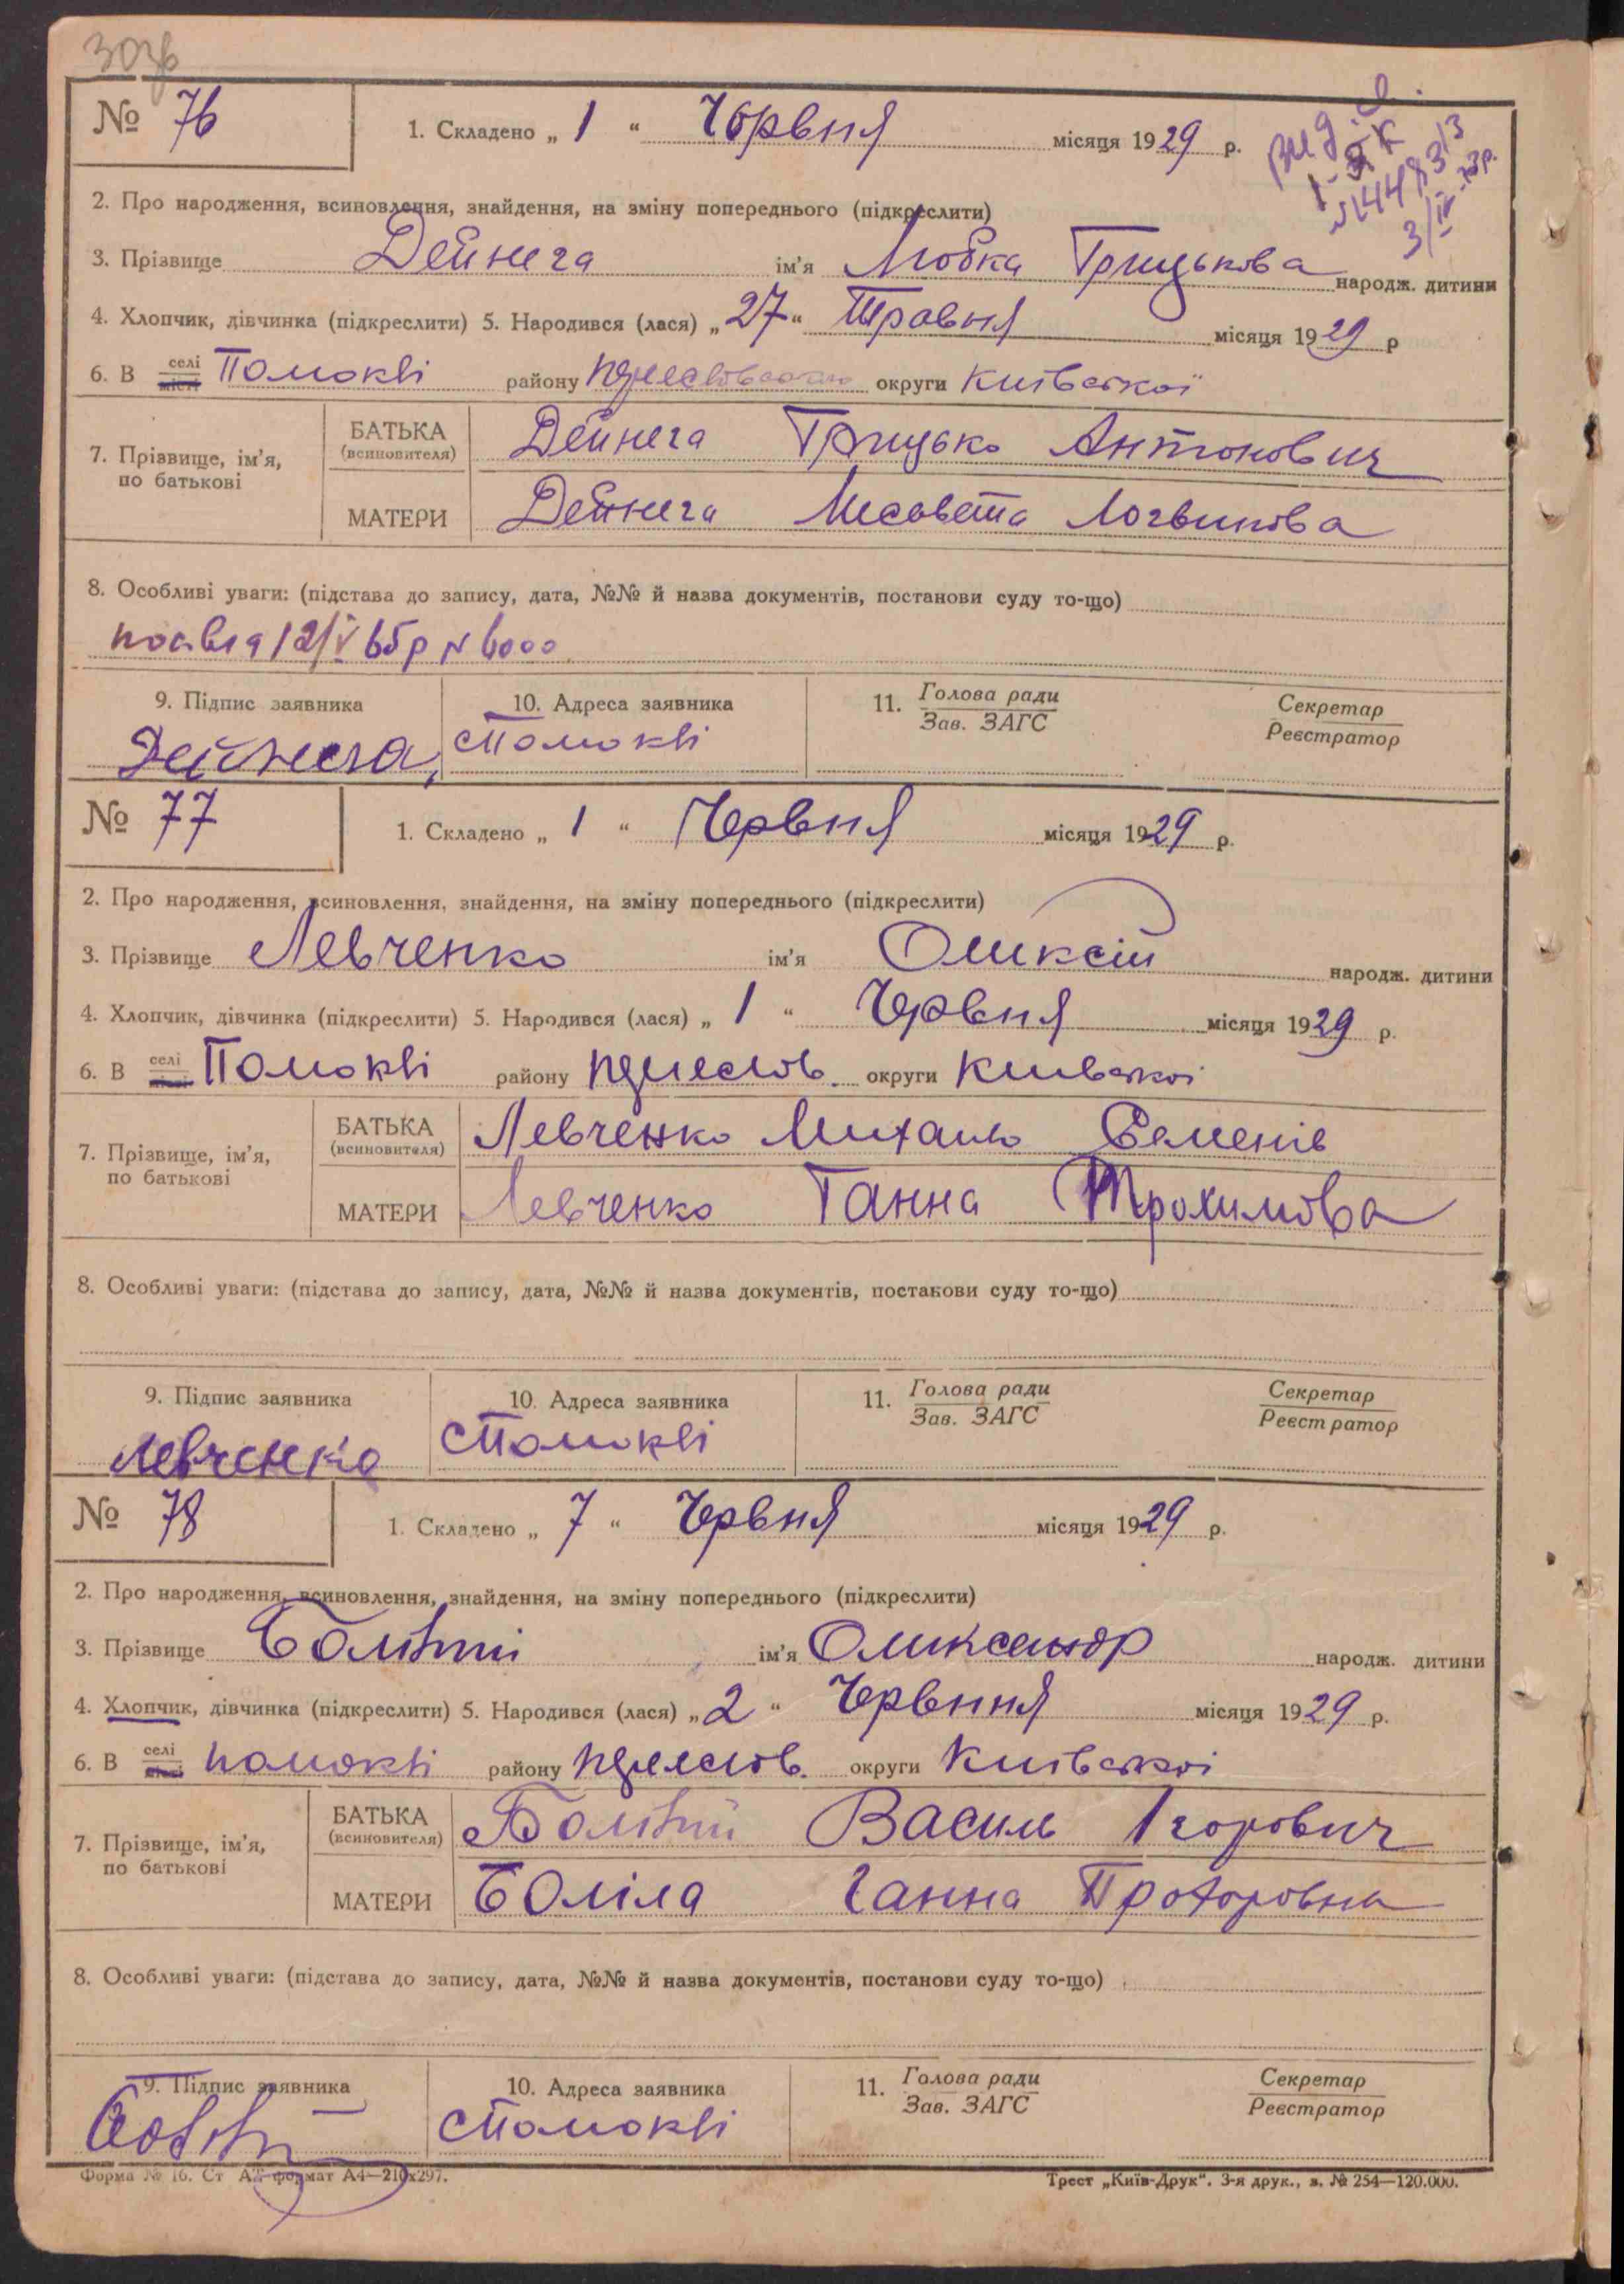 30зв
№ 76
1. Складено „ 1 “ Чорвня місяця 1929 р.
2. Про народження, всиновлення, знайдення, на зміну попереднього (підкреслити)
3. Прізвище Дейнега ім'я Любка Грицькова народж. дитини
4. Хлопчик, дівчинка (підкреслити) 5. Народився (лася) „ 27 “ Травня місяця 1929 р
6. В селі місті Помоклі району округи Київської
7. Прізвище, ім'я, по батькові
БАТЬКА (всиновителя) Дейнега Грицько Антонович
МАТЕРИ Дейнега Лесавета Логвинова
8. Особливі уваги: (підстава до запису, дата, №№ й назва документів, постанови суду то-що)
12/V 65р N
9. Підпис заявника 10. Адреса заявника 11. Голова ради Зав. ЗАГС Секретар Реєстратор
Дейнега, с Помоклі
№ 77
1. Складено „ 1 “ Червня місяця 1929 р.
2. Про народження, всиновлення, знайдення, на зміну попереднього (підкреслити)
3. Прізвище Левченко ім'я Оликсій народж. дитини
4. Хлопчик, дівчинка (підкреслити) 5. Народився (лася) „ 1 “ Червня місяця 1929 р.
6. В селі місті Помоклі району округи Київської
7. Прізвище, ім'я, по батькові
БАТЬКА (всиновителя) Левченко Михайло Семенів
МАТЕРИ Левченко Ганна Трохимова
8. Особливі уваги: (підстава до запису, дата, №№ й назва документів, постанови суду то-що)
9. Підпис заявника 10. Адреса заявника 11. Голова ради Зав. ЗАГС Секретар Реєстратор
Левченко с Помоклі
№ 78
1. Складено „ 7 “ Червня місяця 1929 р.
2. Про народження, всиновлення, знайдення, на зміну попереднього (підкреслити)
3. Прізвище ім'я Оликсандр народж. дитини
4. Хлопчик, дівчинка (підкреслити) 5. Народився (лася) „ 2 “ Червння місяця 1929 р.
6. В селі місті Помоклі району округи Київської
7. Прізвище, ім'я, по батькові
БАТЬКА (всиновителя) Василь Ігорович
МАТЕРИ Боліла Ганна Прохоровна
8. Особливі уваги: (підстава до запису, дата, №№ й назва документів, постанови суду то-що)
9. Підпис заявника 10. Адреса заявника 11. Голова ради Зав. ЗАГС Секретар Реєстратор
с Помоклі
Форма № 16. Ст АТ формат А4—210х297. Трест „Київ-Друк“. 3-я друк., з. № 254—120.000.